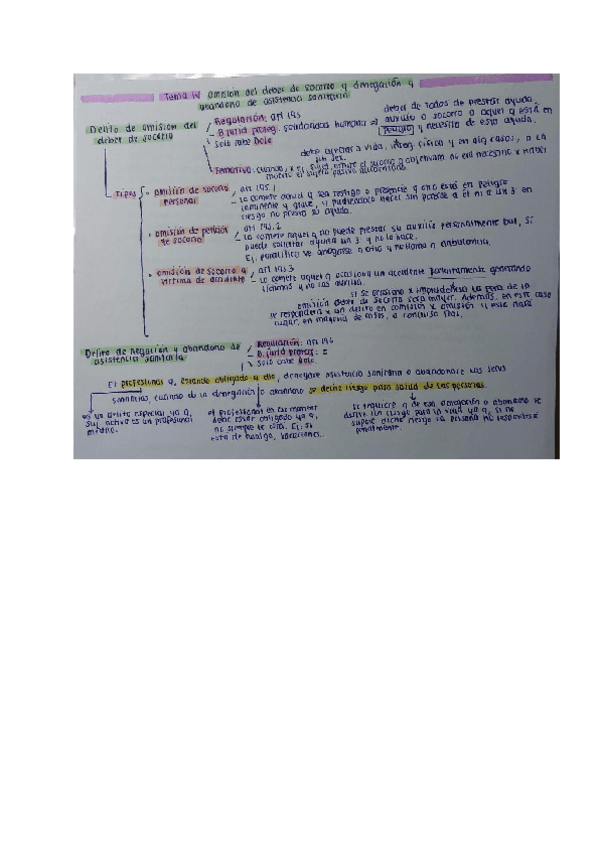 Tema IV omisión del deber de socorro y denegación y
abandono de asistencia sanitaria
Delito de omisión del
deber de socorro
Regulación: art 195
B. jurid proteg: solidaridad humana => deber de todos de prestar ayuda,
auxilio o socorro a aquel q está en
peligro y necesite de esta ayuda.
Solo cabe Dolo
debe afectar a vida, integ física y en alg casos, a la
lib sex.
Tentativa: cuando, x ej, sujeto omite el socorro q objetivam no era necesario x haber
muerto el sujeto pasivo
Tipos
omisión de socorro
personal
art 195.1
Lo comete aquel q sea testigo o presencie q otro está en peligro
y grave, y pudiéndolo hacer sin ponerse a él ni a un 3º en
riesgo no presta su ayuda.
omisión de petición
de socorro
art 195.2
Lo comete aquel q no puede prestar su auxilio personalmente pero, sí
puede solicitar ayuda a un 3º y no lo hace.
Ej. paralítico ve ahogarse a otro y no llama a ambulancia.
omisión de socorro a
víctima de accidente
art 195.3
Lo comete aquel q ocasiona un accidente fortuitamente generando
víctimas y no las auxilia.
si se ocasiona x imprudencia la pena de la
omisión deber de socorro será mayor. Además, en este caso
se responderá x un delito en comisión x omisión si este tiene
lugar, en mayoría de casos, a concurso real.
Delito de negación y abandono de
asistencia sanitaria
Regulación: art 196
B. jurid proteg:
Solo cabe Dolo
El profesional q, estando obligado a ello, denegare asistencia sanitaria o abandonare los servs
sanitarios, cuando de la denegación o abandono se derive riesgo para salud de las personas.
es un delito especial ya q,
suj. activo es un profesional
médico.
el profesional en ese momento
debe estar obligado ya q,
no siempre lo está. Ej: si
está de huelga, vacaciones..
se requiere q de esa denegación o abandono se
derive un riesgo para la vida ya q, si no
supone dicho riesgo la persona no responderá
penalmente.